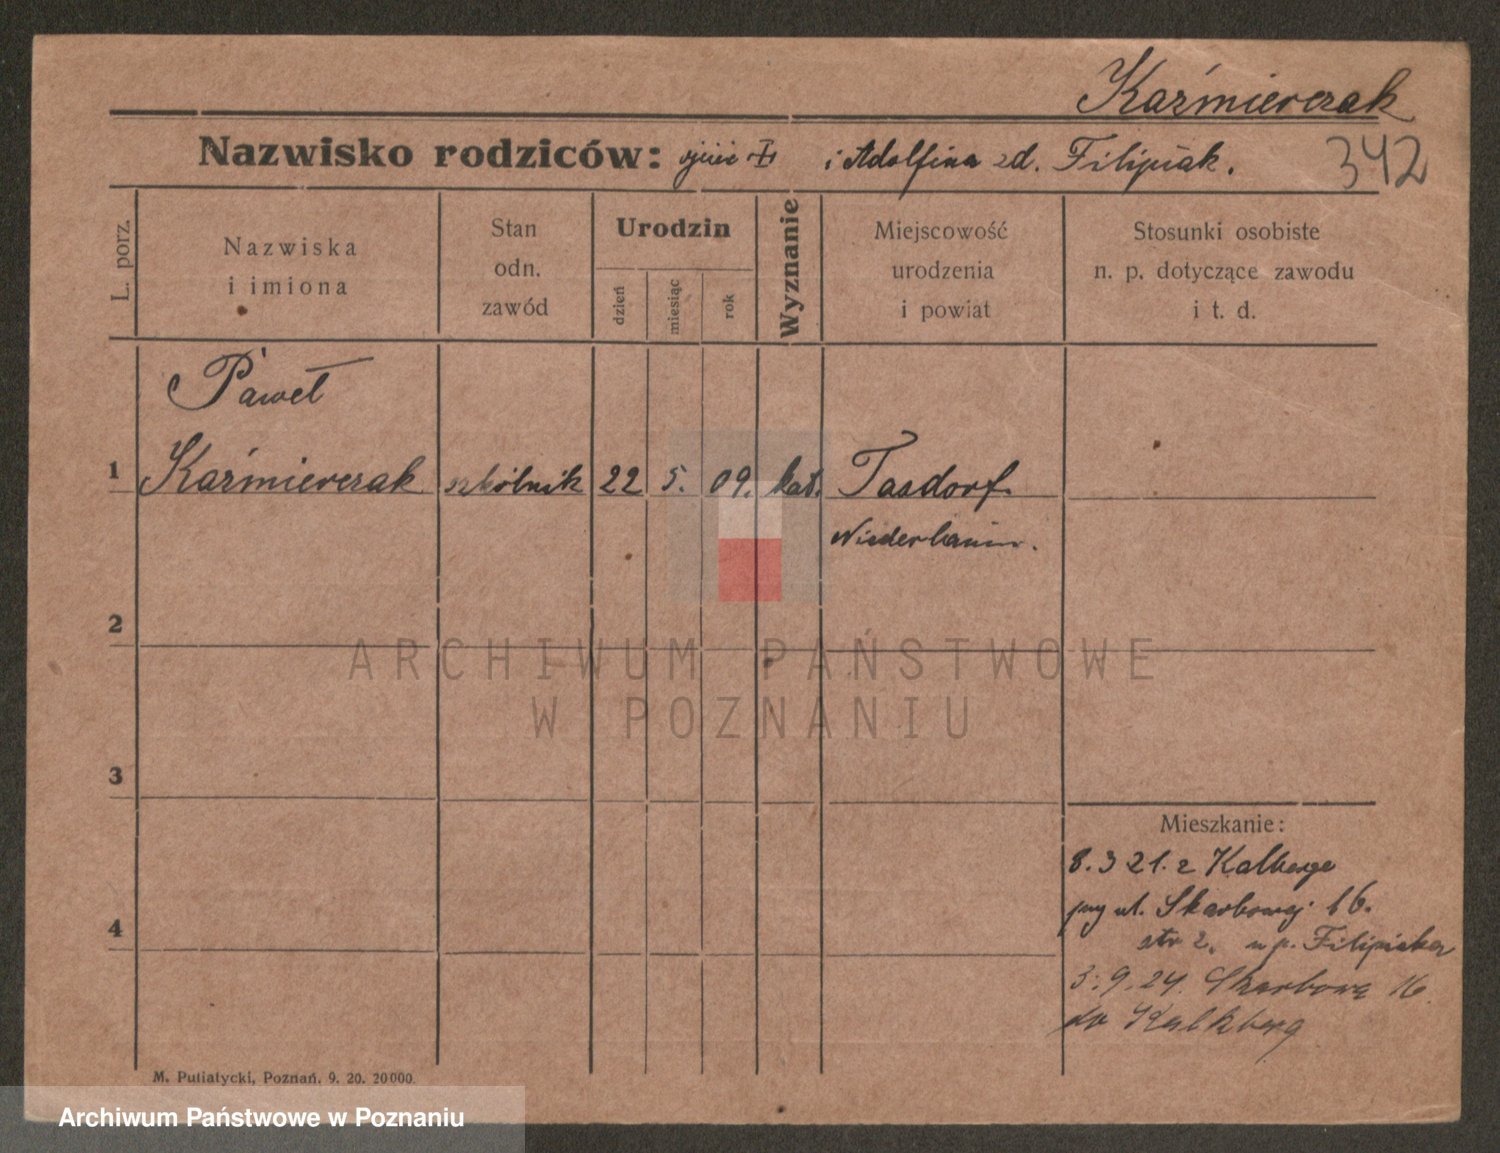 Kaźmierczak
Nazwisko rodziców: ojciec i Adolfina zd. Filipiak.
342
L. porz.
Nazwiska
i imiona
Stan
odn.
zawód
Urodzin
dzień
miesiąc
rok
Wyznanie
Miejscowość
urodzenia
i powiat
Stosunki osobiste
n. p. dotyczące zawodu
i t. d.
Paweł
1 Kaźmierczak szkólnik 22 5. 09. kat. Tasdorf
Niederbarnim.
2
3
4
Mieszkanie:
8.3 21. z Kalberge
przy ul. Skarbowej 16.
str 2. u p. Filipiaka
3.9.24. Skarbowa 16
do Kalkberg
M. Putiatycki, Poznań. 9. 20. 20000.
ARCHIWUM PAŃSTWOWE
W POZNANIU
Archiwum Państwowe w Poznaniu